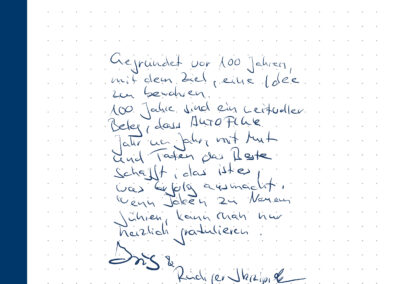 Gegründet vor 100 Jahren,
mit dem Ziel, eine Idee
zu bewahren.
100 Jahre sind ein wertvoller
Beleg, dass
Jahr um Jahr, mit Mut
und Taten das Beste
schafft, das ist es,
was Erfolg ausmacht.
Wenn Ideen zu Namen
führen, kann man nur
herzlich gratulieren.
Iris &
Rüdiger